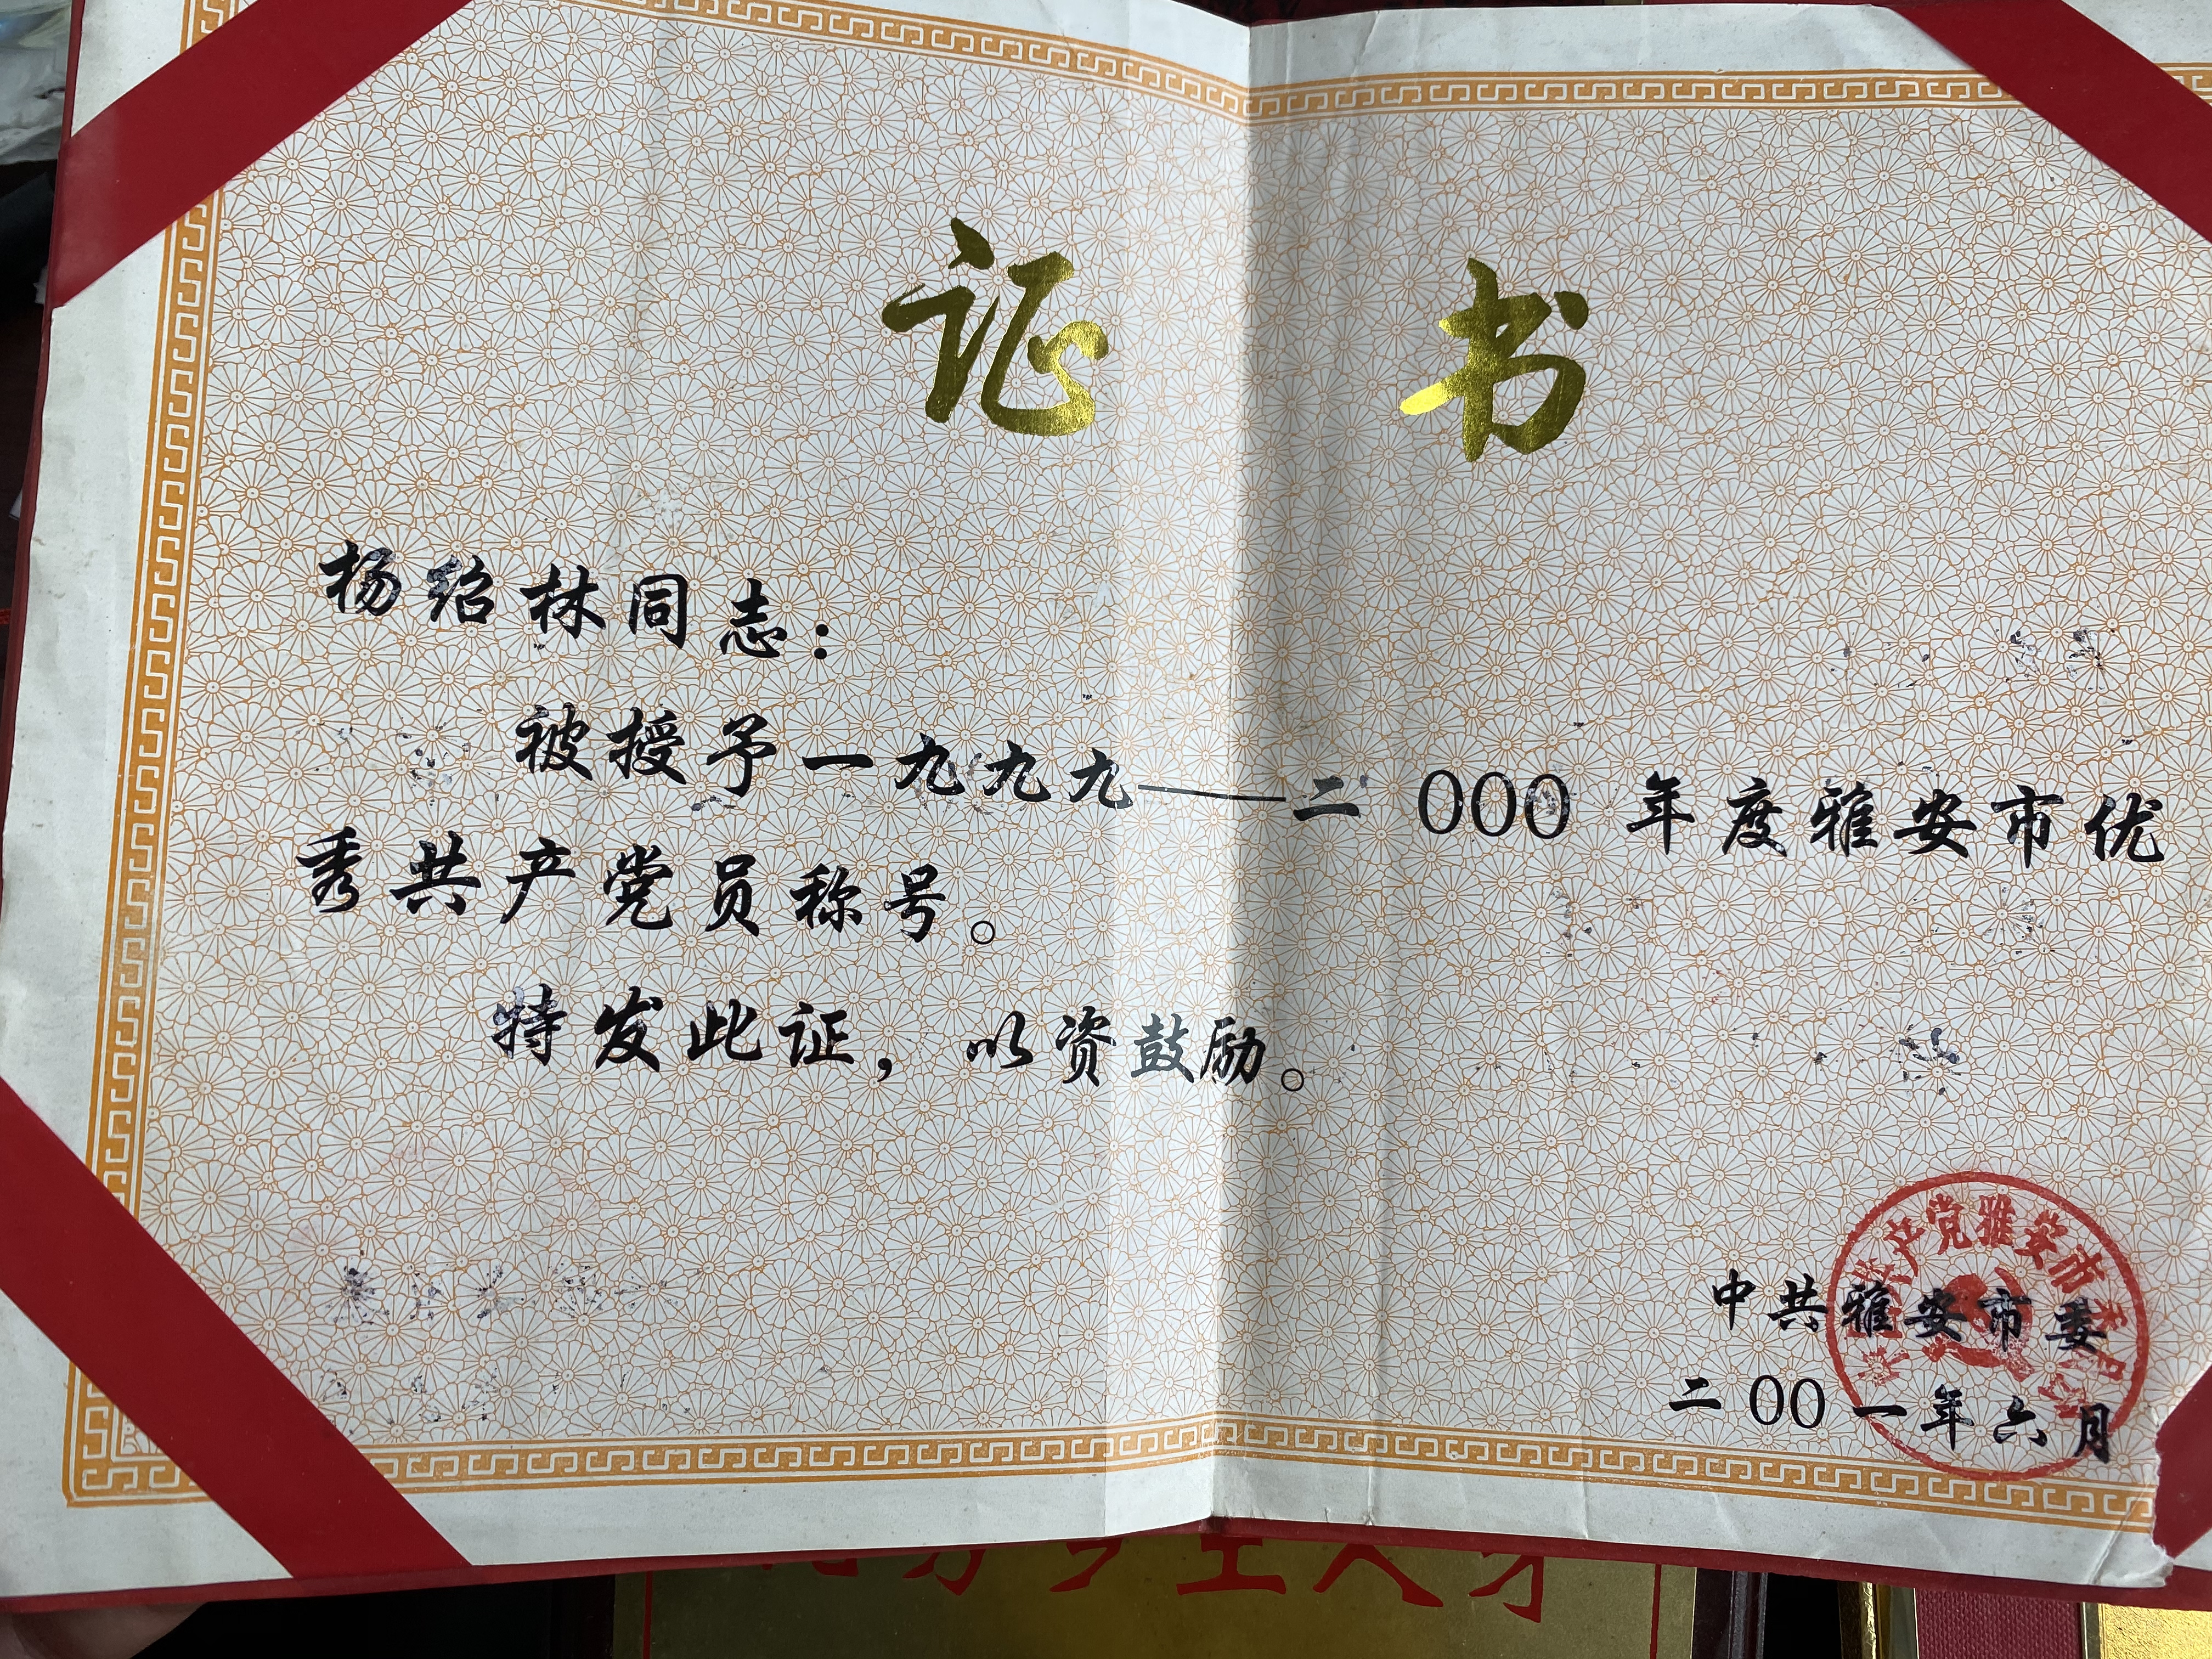 证书
杨绍林同志：
被授予一九九九——二000年度雅安市优
秀共产党员称号。
特发此证，以资鼓励。
产党雅安市
中共雅安市委
二00一年六月
土人才